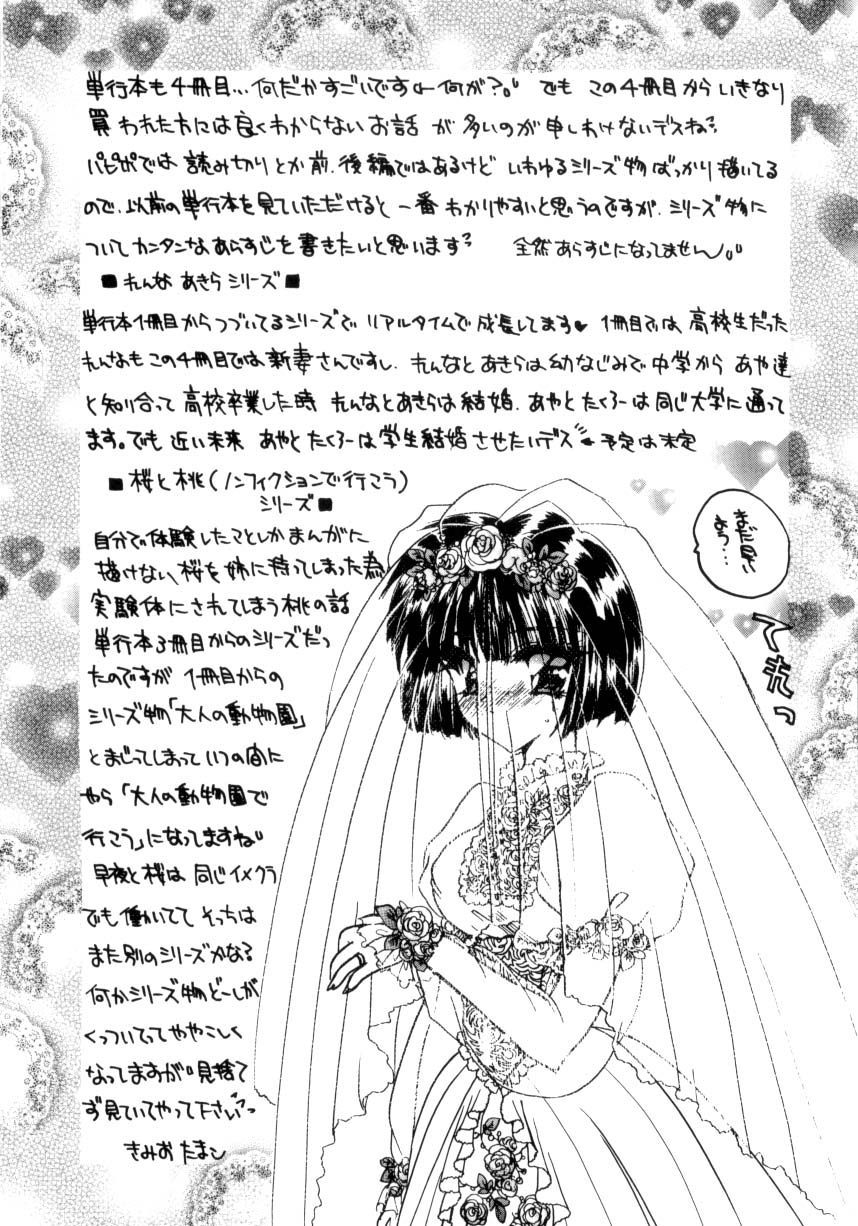 単行本も4冊目…何だかすごいです←何が?。 でも この4冊目からいきなり
買われた方には良くわからないお話が多いのが申しわけないデスね
パピポでは読み切りとか前.後編ではあるけど いわゆるシリーズ物ばっかり描いてる
ので、以前の単行本を見ていただけると一番わかりやすいと思うのですが、シリーズ物に
ついてカンタンなあらすじを書きたいと思います 全然あらすじになってません。
■れんな あきらシリーズ■
単行本1冊目からつづいてるシリーズで リアルタイムで成長してます♥ 1冊目では高校生だった
れんなもこの4冊目では新妻さんですし、れんなとあきらは幼なじみで中学から あや達
と知り合って高校卒業した時 れんなとあきらは結婚、あやとたくろーは同じ大学に通って
ます。でも 近い未来 あやとたくろーは学生結婚させたいデス ←予定は未定
■桜と桃(ノンフィクションで行こう)
シリーズ■
自分で体験したことしかまんがに
描けない、桜を姉に持ってしまった為
実験体にされてしまう桃の話
単行本3冊目からのシリーズだっ
たのですが 1冊目からの
シリーズ物「大人の動物園」
とまじってしまって いつの間に
やら「大人の動物園で
行こう」になってますね。
早夜と桜は同じイメクラ
でも働いてて そっちは
また別のシリーズかなる
何かシリーズ物どーしが
くっついてってややこしく
なってますが。見捨て
ず見ていてやって下さい
きみおたまこ
まだ早い
よう…
てれっ